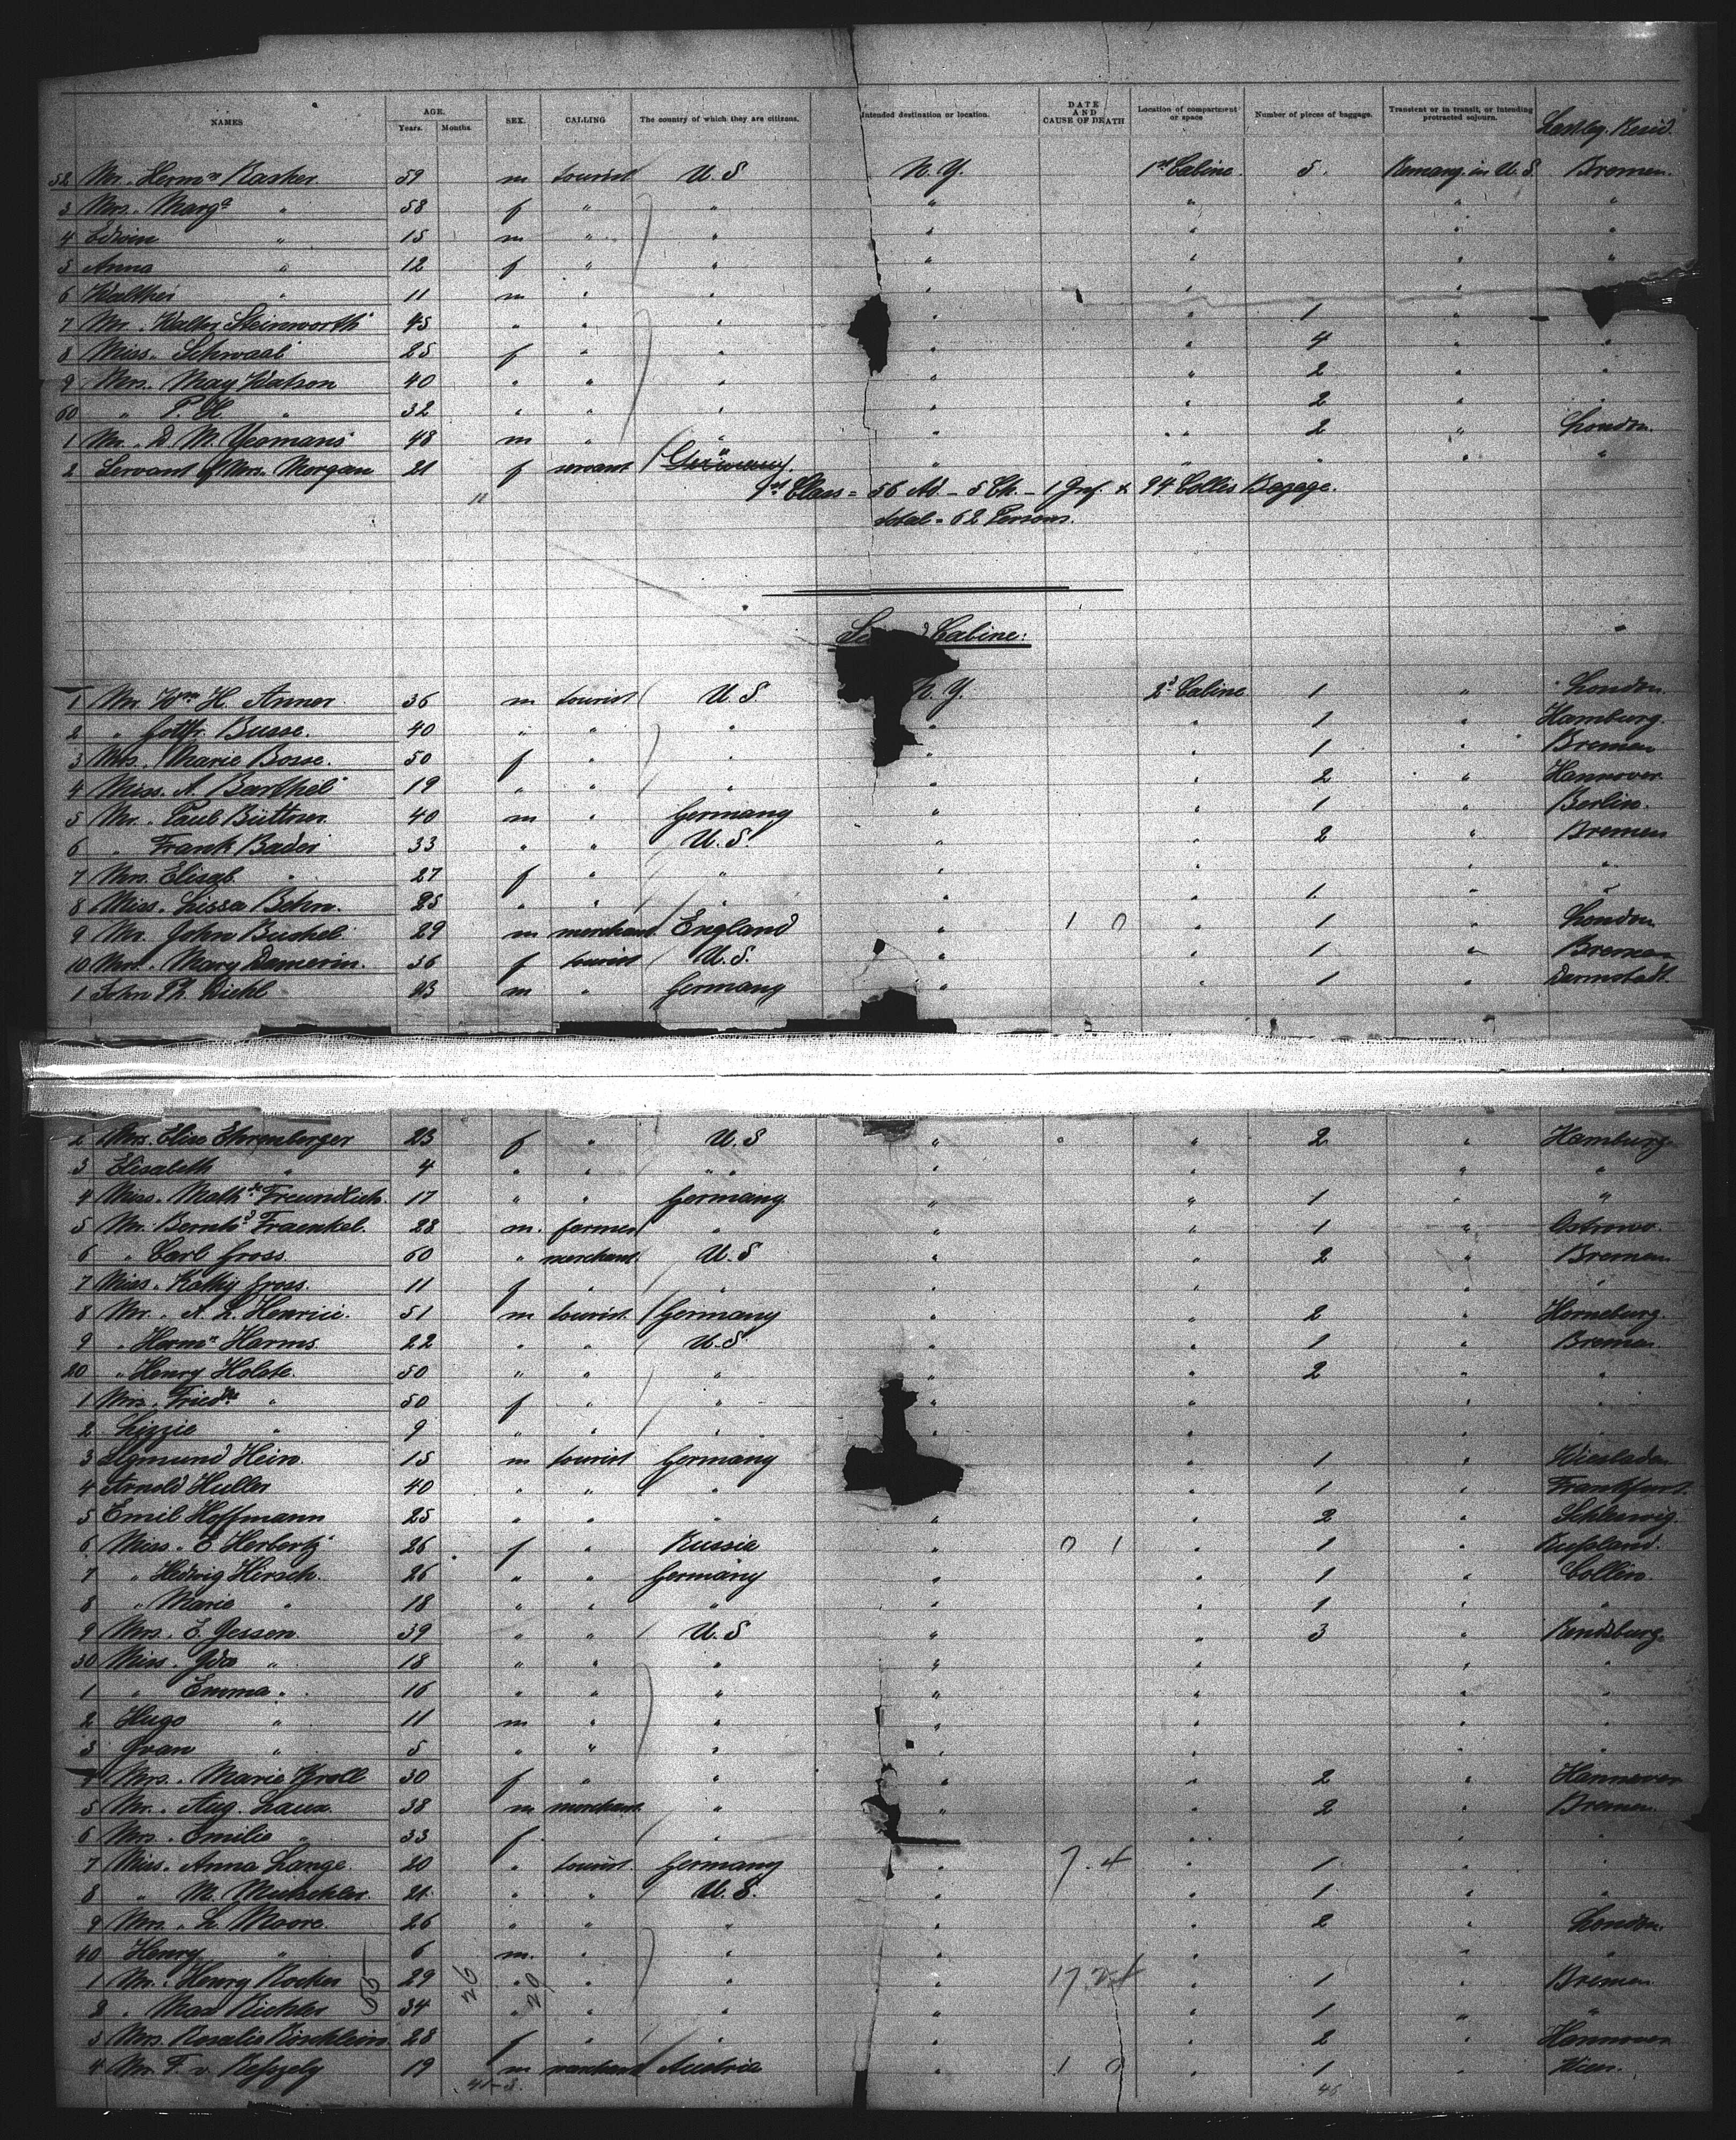 NAMES AGE. Years. Months. SEX. CALLING The country of which they are citizens. Intended destination or location. DATE AND CAUSE OF DEATH Location of compartment or space Number of pieces of baggage. Transient or in transit, or intending protracted sojourn.
52 Mr. Hermn 59 m tourist U.S N.Y. 1st Cabine. 5. in U.S. Bremen.
3 Mrs. Marga " 58 f " " " " " "
4 Edwin " 15 m " " " " " "
5 Anna " 12 f " " " " " "
6 Walther " 11 m " " " " "
7 Mr. Walter Steinworth 45 " " " " " 1 "
8 Miss. Schwaab 25 f " " " " 4 " "
9 Mrs. May Watson 40 " " " " " 2 " "
60 " P. H. " 32 " " " " " 2 " "
1 Mr. D. M. Yeomans 48 m " " " " 2 " London.
2 Servant of Mrs. Morgan 21 f servant Germany " " " " "
11 1st Class = 56 Ad - 5 Ch. - 1 Inf. & 94 Collis Bagage.
total = 62 Persons.
Cabine:
1 Mr. Wm H. Anner 36 m tourist U.S. N.Y. 2d Cabine 1 " London.
2 " Gottfr. Busse. 40 " " " " " 1 " Hamburg.
3 Mrs. Marie Bosse. 50 f " " " 1 " Bremen
4 Miss. A. Barthel 19 " " " " " 2 " Hannover
5 Mr. Paul Büttner 40 m " Germany " " 1 " Berlin.
6 " Frank Bader 33 " " U.S. " " 2 " Bremen
7 Mrs. Elisab. " 27 f " " " " " "
8 Miss. Lissa Behn. 25 " " " " " 1 " "
9 Mr. John Buchel 29 m merchant England " 1 0 " 1 " London
10 Mrs. Mary Damerin. 36 f tourist U.S. " " 1 " Bremen
1 John Ph. Diehl 23 m " Germany " " 1 " Darmstadt.
2 Mrs. Elise Ehrenberger 23 f " U.S " " 2 " Hamburg
3 Elisabeth " 4 " " " " " " " "
4 Miss. Mathde Freundlich 17 " " Germany " " 1 " "
5 Mr. Bernhd Fraenkel. 28 m. farmer " " " 1 " Ostrowo.
6 " Carl Gross. 60 " merchant U.S " " 2 " Bremen
7 Miss. Kathy Gross. 11 f " " " " " "
8 Mr. A. L. Henrici. 51 m tourist Germany " " 2 " Horneburg.
9 " Hermn Harms. 22 " " U.S " " 1 " Bremen.
20 " Henry Holste. 50 " " " " " 2 " "
1 Mrs. Friedke " 50 f " " " " "
2 Lizzie " 9 " " " " " "
3 Sigmund Hein. 15 m tourist Germany " 1 " Wiesbaden
4 Arnold Huller 40 " " " " 1 " Frankfurt.
5 Emil Hoffmann 25 " " " " " 2 " Schleswig.
6 Miss. E Herbertz 26 f " Russia " 0 1 " 1 " Rußland.
7 " Hedwig Hirsch. 26 " " Germany " " 1 " Collin.
8 " Marie " 18 " " " " " 1 " "
9 Mrs. E. Jessen. 39 " " U.S " " 3 " Rendsburg.
30 Miss. Ida " 18 " " " " " " "
1 " Emma " 16 " " " " " " "
2 Hugo " 11 m " " " " " "
3 Ivan " 5 " " " " " " "
4 Mrs. Marie Kroll 30 f " " " " 2 " Hannover
5 Mr. Aug. Laux. 38 m merchant " " " 2 " Bremen.
6 Mrs. Emilie " 33 f " " " "
7 Miss. Anna Lange. 20 " tourist Germany " 7 . 4 " 1 " "
8 " M. 21 " " U.S. " " 1 " "
9 Mrs. L. Moore. 26 " " " " " 2 " London.
40 Henry " 6 m. " " " " " "
1 Mr. Henry 29 " " " " 17 24 " 1 " Bremen
2 " Max Richter 34 " " " " " 1 " "
3 Mrs. Rosalie 28 f " " " " 2 " Hannover
4 Mr. F. v. 19 m merchant Austria " 1 0 " 1 " Wien.
55 26 20